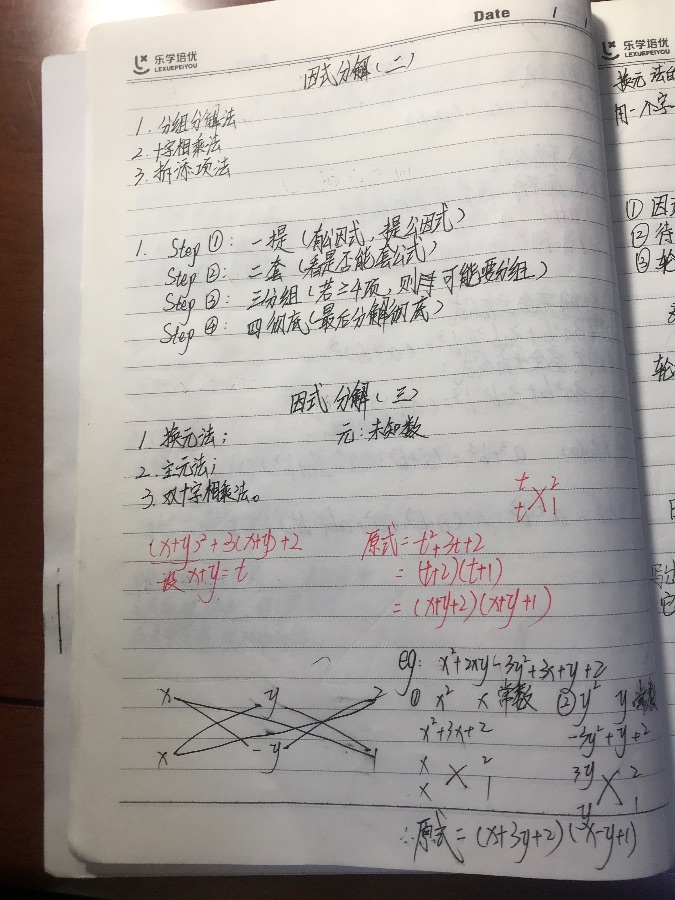 Date / /
乐学培优
LEXUEPEIYOU
因式分解(二)
1. 分组分解法
2. 十字相乘法
3. 拆添项法
1. Step ①: 一提(有公因式,提公因式)
Step ②: 二套(看是否能套公式)
Step ③: 三分组(若≥4项,则可能要分组)
Step ④: 四彻底(最后分解彻底)
因式分解(三)
1. 换元法; 元:未知数
2. 主元法;
3. 双十字相乘法。
t 2
t 1
(x+y)²+3(x+y)+2 原式=t²+3t+2
设 x+y=t =(t+2)(t+1)
=(x+y+2)(x+y+1)
eg: x²+2xy-3y²+3x+y+2
① x² x 常数 ② y² y 常数
x²+3x+2 -3y²+y+2
x 2 3y 2
x 1 1
x y 2
x -y 1
∴原式=(x+3y+2)(x-y+1)
乐学培优
LEXUEPEIYOU
换元法的
用一个字
① 因式
② 待
③ 轮
轮